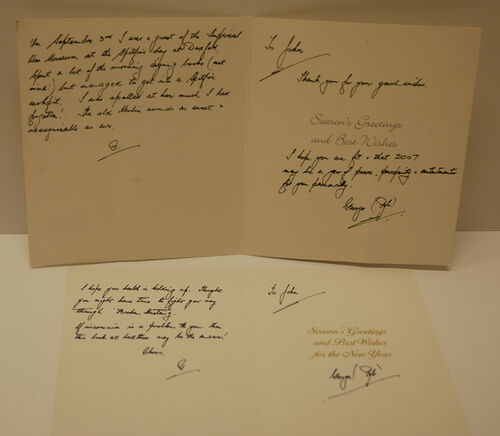 On September 3rd I was a guest of the Imperial
War Museum at the Spitfire day at Duxford.
Spent a lot of the morning signing books (not
mine!) but managed to get into a Spitfire
cockpit. I was apalled at how much I had
forgotten! The old Merlin sounds as sweet +
recognisable as ever.
G
To John
Thank you for your good wishes.
Season's Greetings
and Best Wishes
I hope you are fit + that 2007
may be a year of peace, prosperity + contentment
for you personally.
George
I hope your health is holding up. Thought
you might have time to fight your way
through Mustang.
If insomnia is a problem to you then
this book at bedtime may be the answer!
Cheers,
G
To John
Season's Greetings
and Best Wishes
for the New Year
George